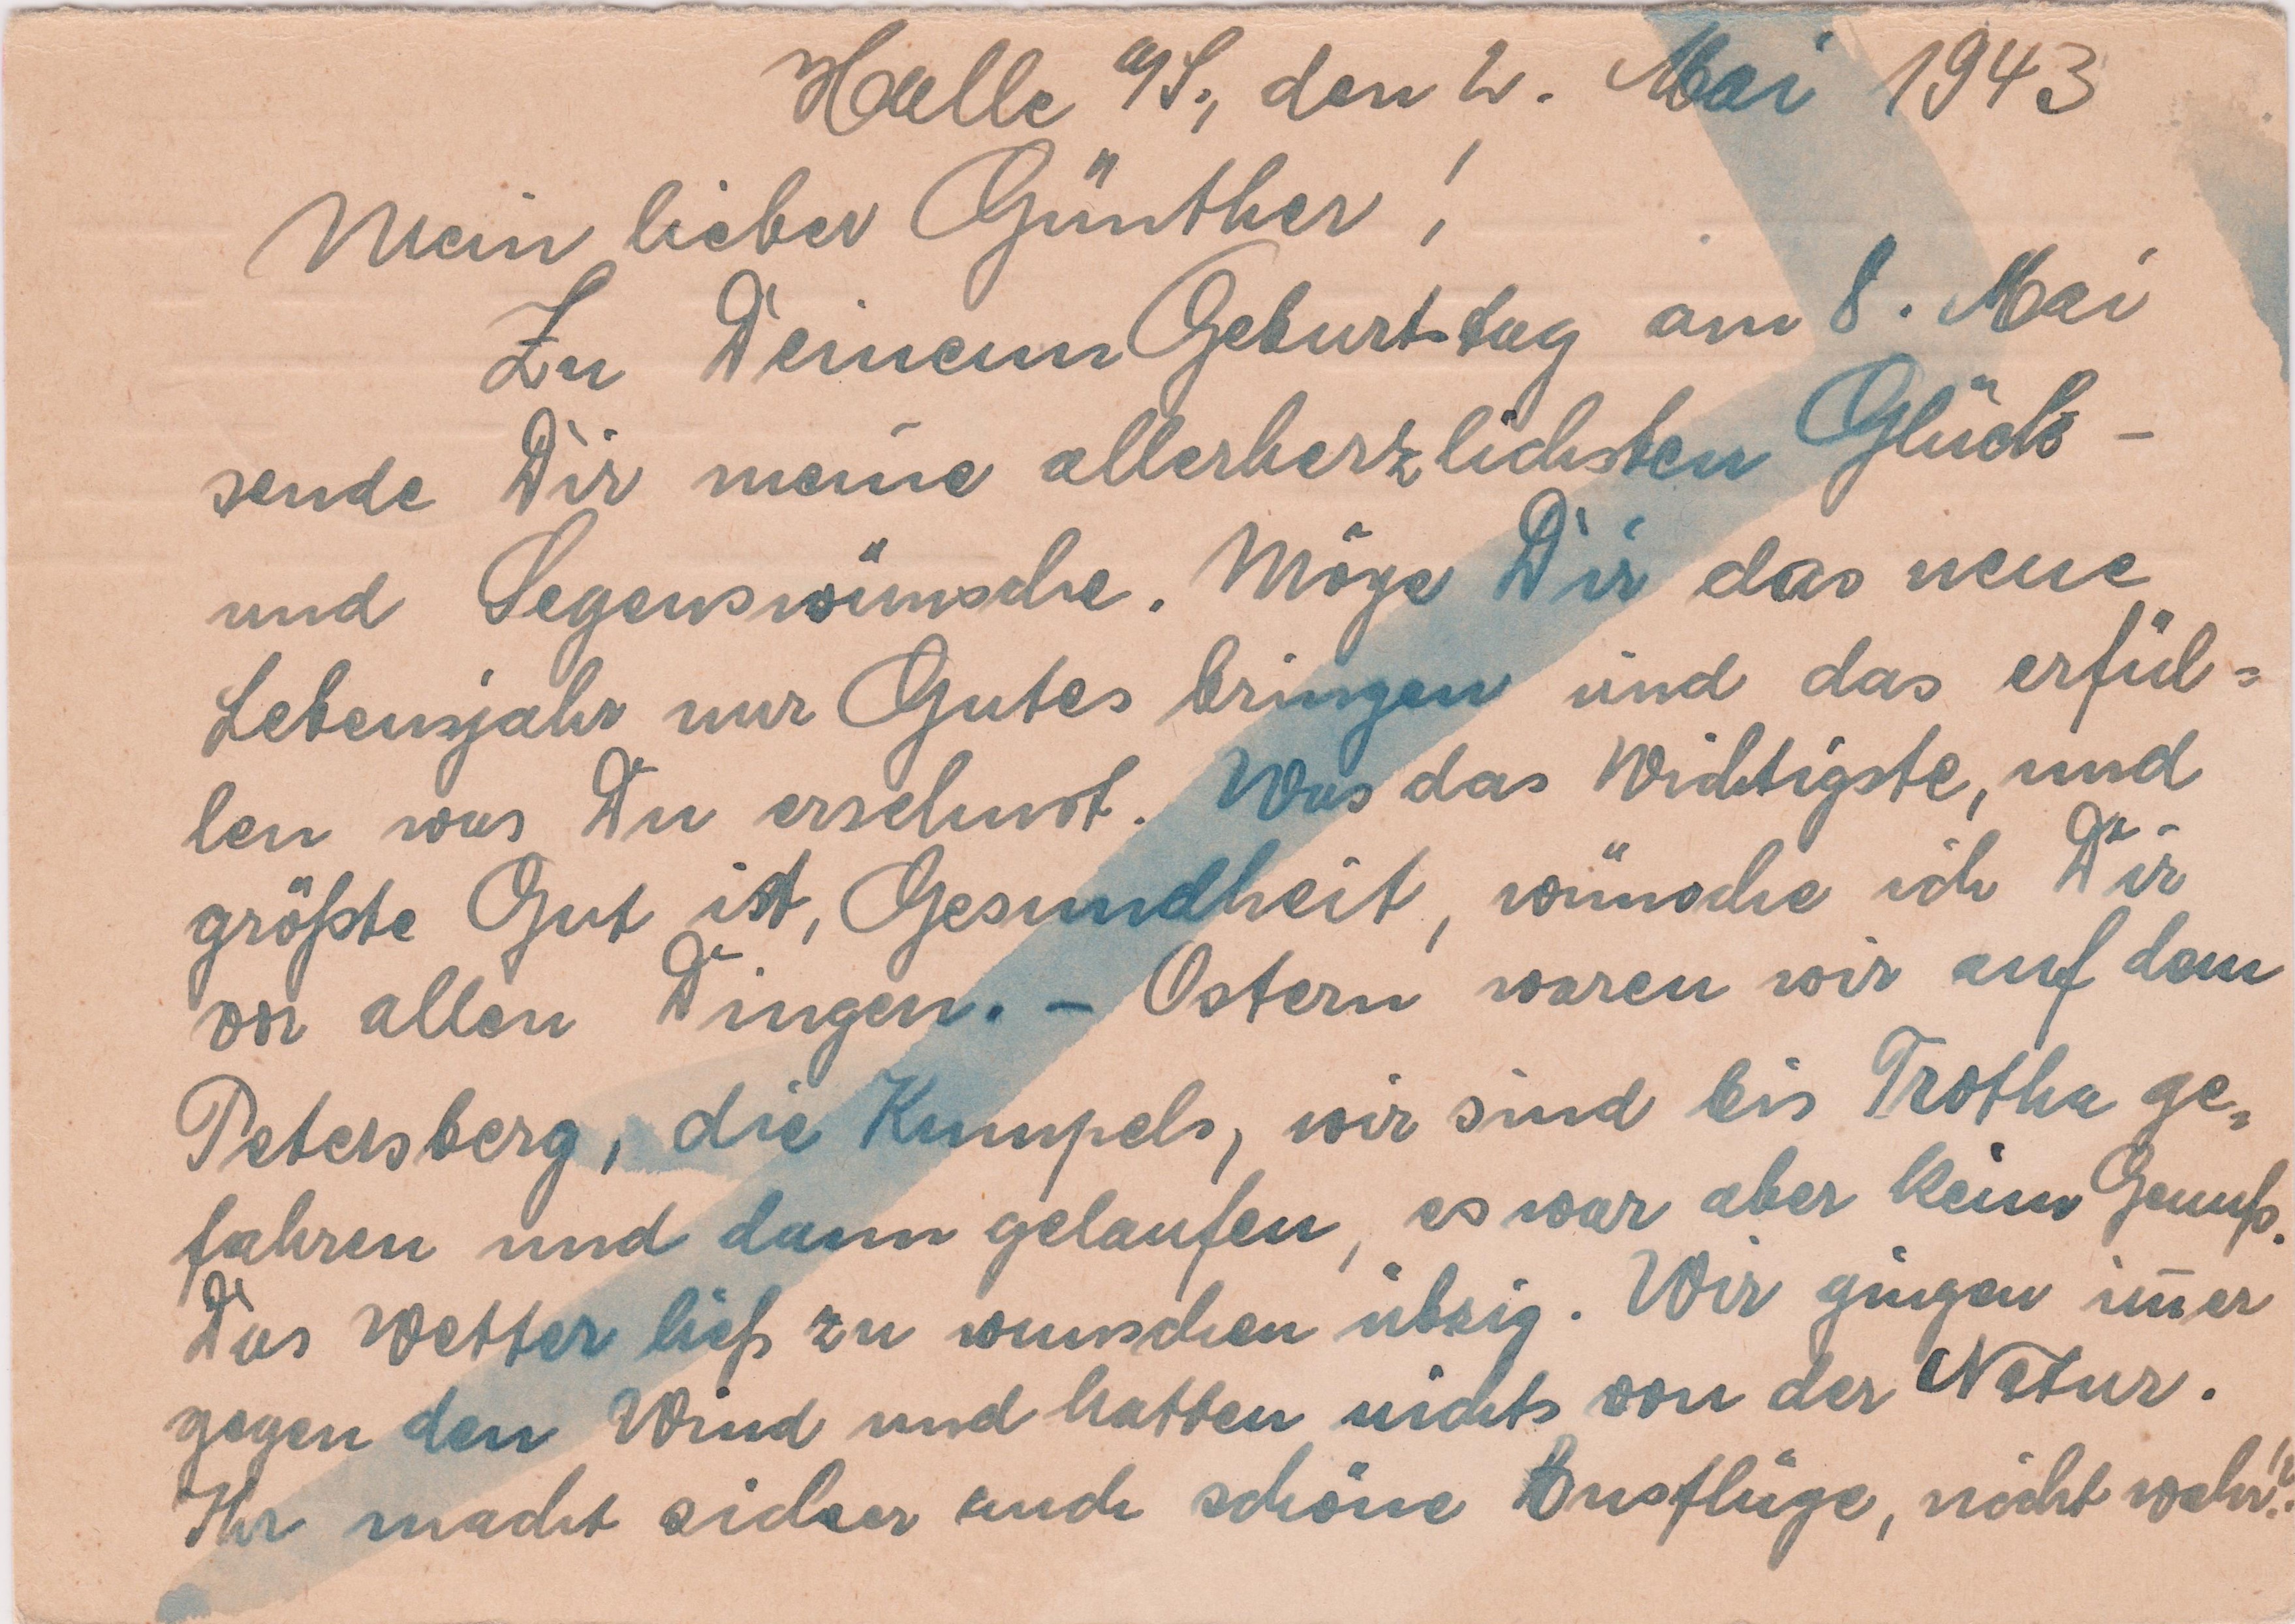 Halle a/S., den 2. Mai 1943
Mein lieber Günther!
Zu Deinem Geburtstag am 8. Mai
sende Dir meine allerherzlichsten Glück-
und Segenswünsche. Möge Dir das neue
Lebensjahr nur Gutes bringen und das erfül=
len was Du ersehnst. Was das Wichtigste, und
größte Gut ist, Gesundheit, wünsche ich Dir
vor allen Dingen. – Ostern waren wir auf dem
Petersberg, die Kumpels, wir sind bis Trotha ge=
fahren und dann gelaufen, es war aber kein Genuß.
Das Wetter ließ zu wunschen übrig. Wir gingen im̅er
gegen den Wind und hatten nichts von der Natur.
Ihr macht sicher auch schöne Ausflüge, nicht wahr?